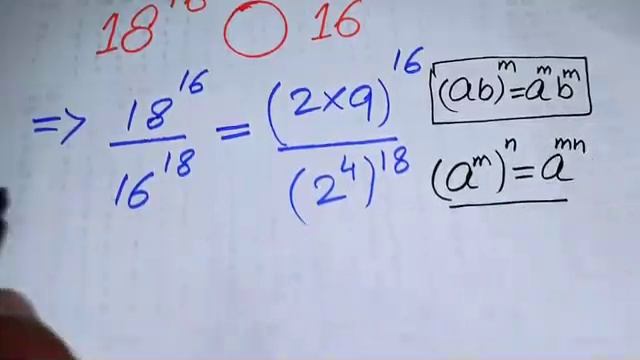 18^16 ○ 16
=> 18^16 / 16^18 = (2×9)^16 / (2^4)^18
(ab)^m = a^m b^m
(a^m)^n = a^mn